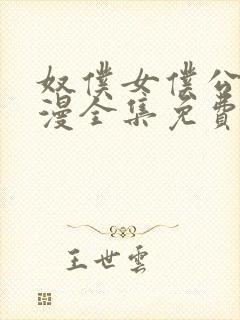 奴僕女僕公
漫全集免費
王世雲